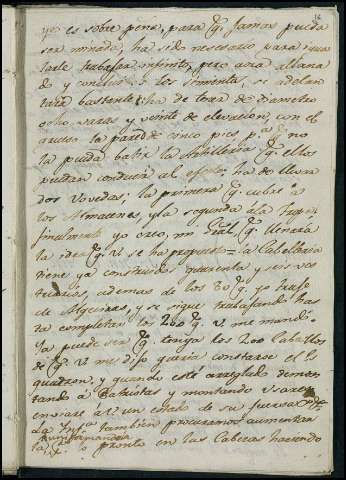 yo es sobre peña, para q.e jamas pueda
ser minado, ha sido necesario para
tarle trabajar infinito, pero aora allana
do y concluido los Simientos, se adelan
tará bastante: ha de tener de diametro
ocho varas, y veinte de elevacion, con el
grueso la pared de cinco pies p.a q.e no
la pueda batir la Artilleria q.e ellos
puedan conducir al efecto; ha de llevar
dos Vovedas; la primera q.e cubra a
los Almacenes, y la segunda á la Tropa
finalmente yo creo, mi Gral q.e llenará
la idea q.e V. se ha propuesto = la Caballeria
tiene ya construidos quarenta y seis ves
tuarios, ademas de los 80 q.e yo trafe
de Algeciras, y sigue trabafando has
ta completar los 200 q.e V. me mandó
ya puede ser q.e tenga los 200 Caballos
de q.e V. me dijo queria constarse el Es
quadron, y quando esté arreglado demon
tando á Patriotas y montando
enviare á V. un estado de su fuerza
La Inf.a tambien procuramos aumentar
la lo pronto en las Caberas haciendo